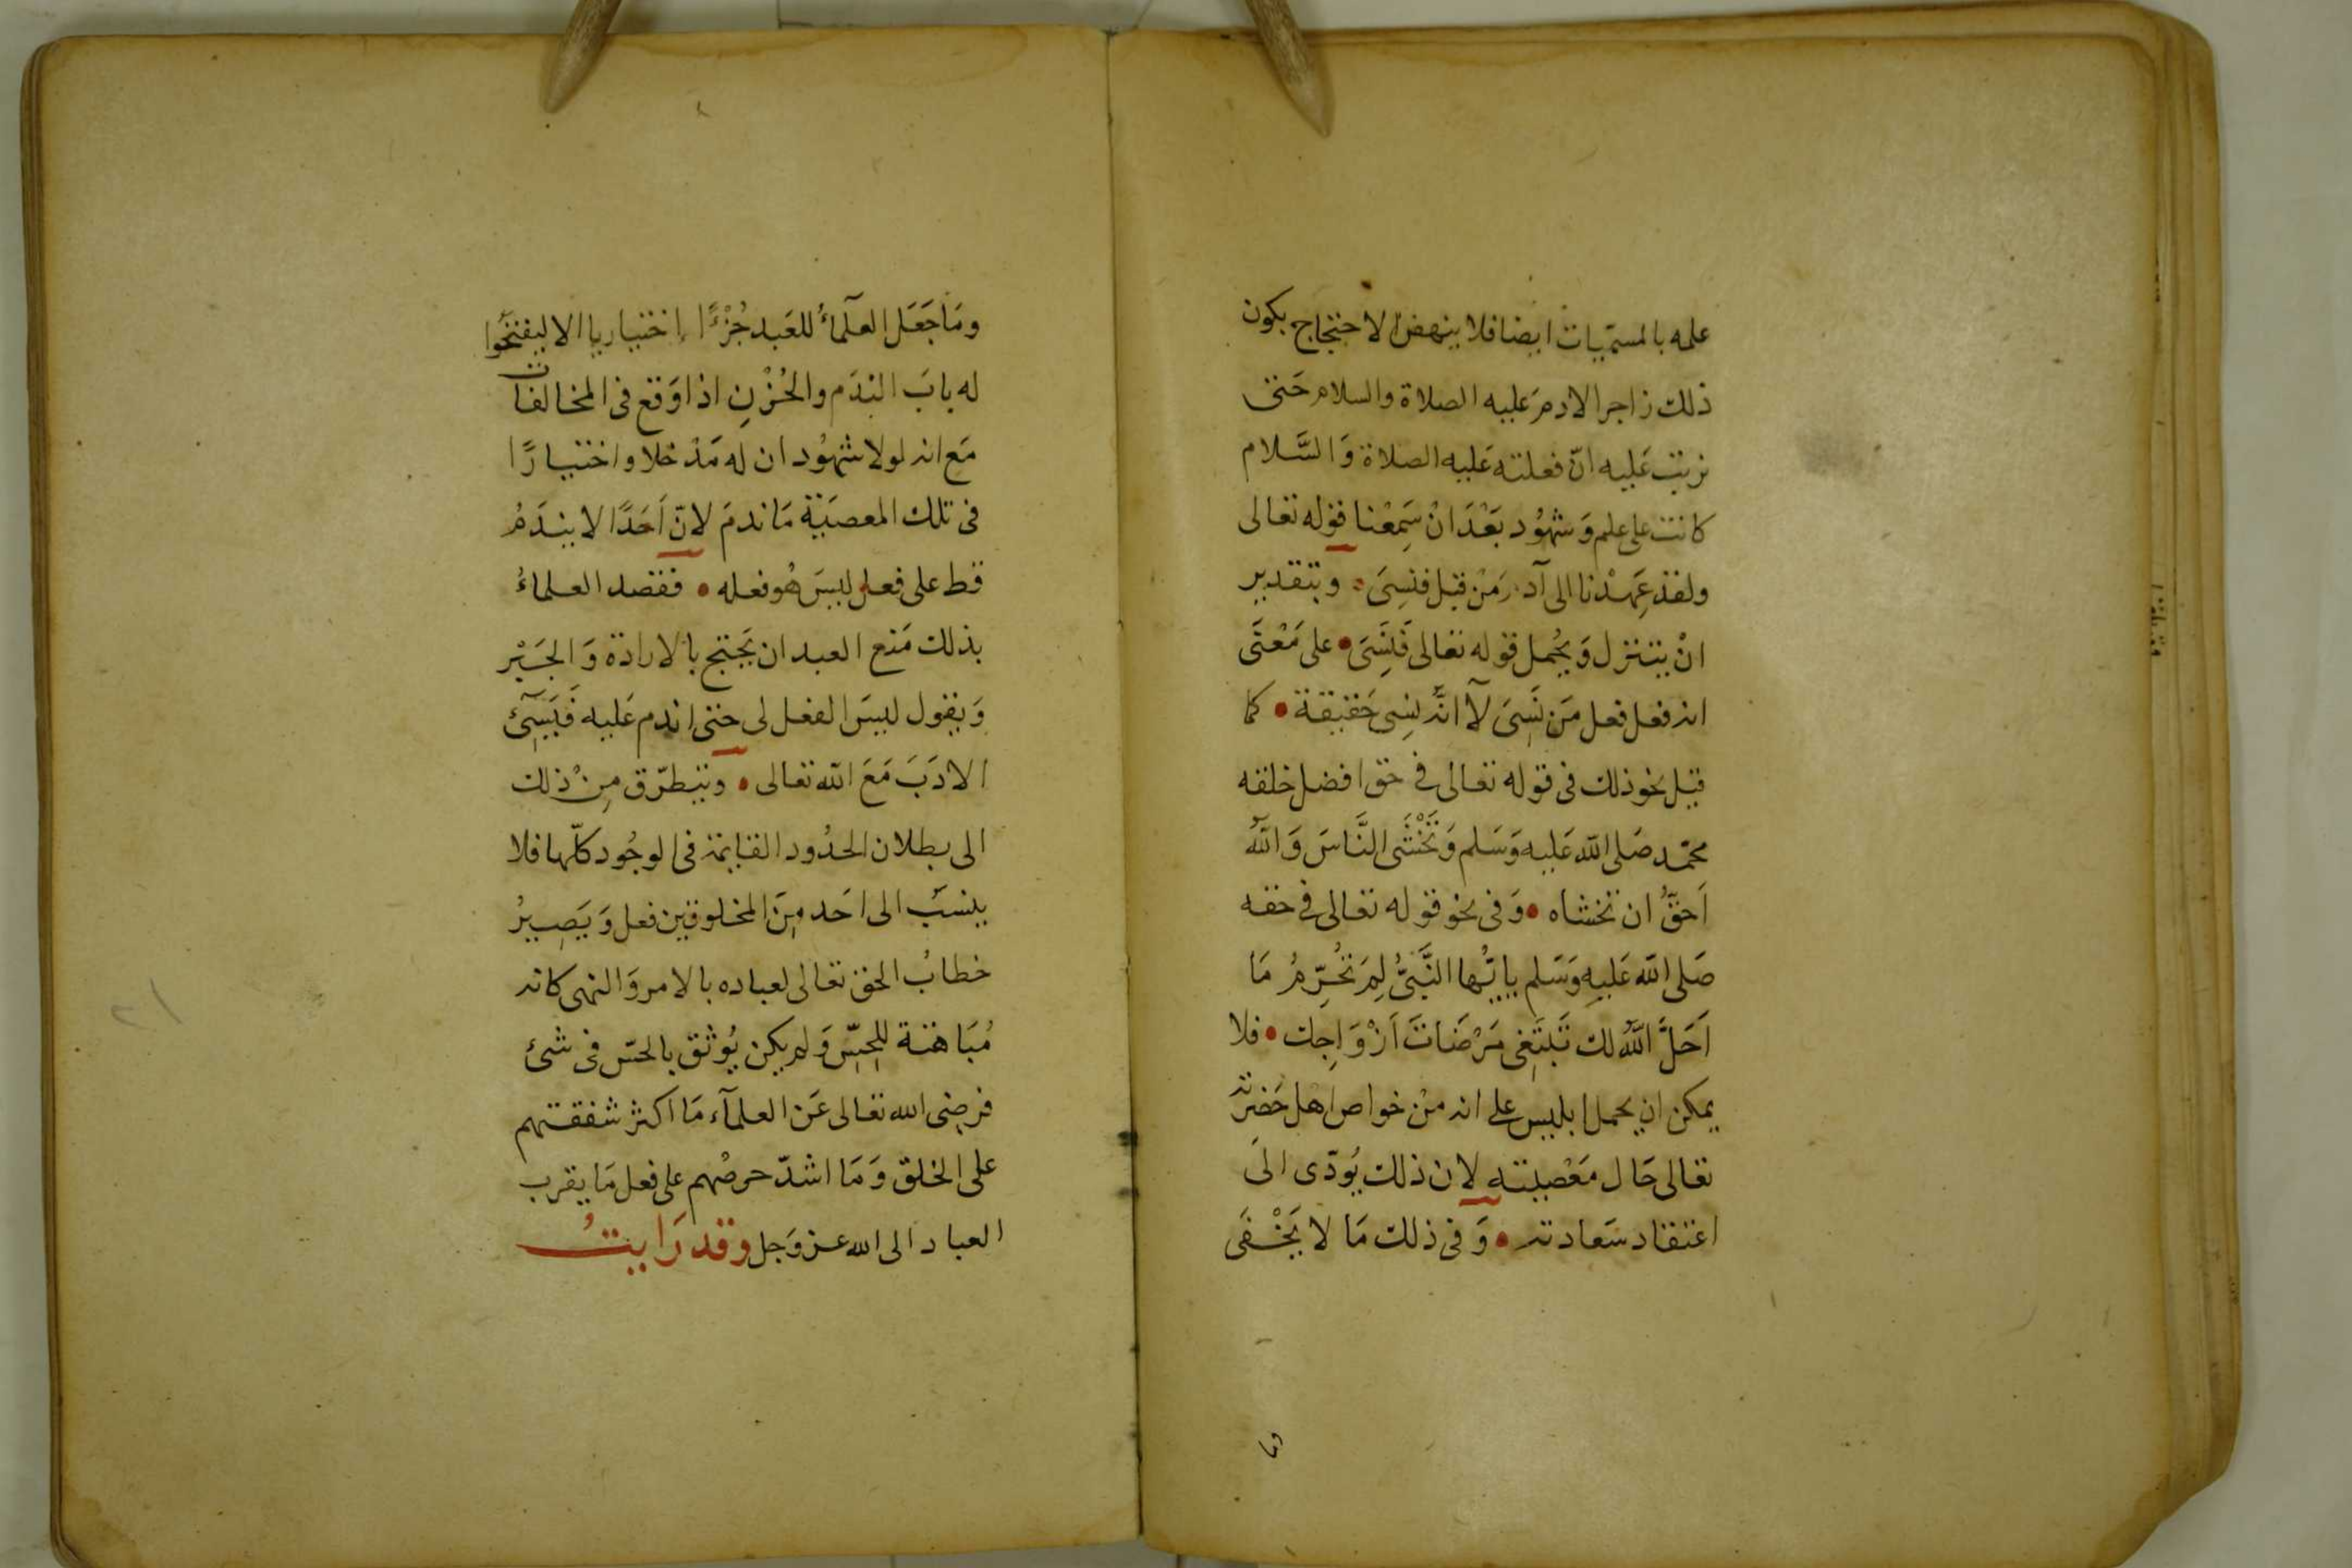 علمه بالمسميات ايضا فلا ينهض الاحتجاج بكون
ذلك زاجرا لادم عليه الصلاة والسلام حتى
نزيت عليه انّ فعلته عليه الصلاة وَالسَّلام
كانت على علم وَشهُود بَعْدَ انْ سَمِعْنا قوله تعالى
ولقد عَهِدْنا الى آدم مَن قبل فنسِىَ • وبتقدير
انْ يتنزل وَيحُمل قوله تعالى فَنَسِىَ • على مَعْنَى
انه فعل فعل مَن نَسِىَ لآ انَّه نسِى حَقيقة • كما
قيل نحو ذلك فى قوله تعالى فى حق افضل خلقه
محمّد صَلى الله عَليه وَسَلم وَتَخْشَى النَّاسَ وَاللّٰهُ
اَحَقُّ ان تخشاه • وَفى نحو قوله تعالى فى حقه
صَلى الله عَليهِ وَسَلم ياايّها النَّبىُّ لِمَ تحُرِّمُ مَا
اَحَلَّ اللّٰهُ لك تَبتَغِى مَرْضَاتَ اَزْوَاجِك • فلا
يمكن ان يحمل ابليس على انه منْ خواص اهل حَضرته
تعالى حَال مَعْصيته لان ذلك يُودّى الىَ
اعتقاد سَعادته • وَفى ذلك مَا لا يَخْفَى
وما
ومَا جَعَل العلَماءُ للعَبد جُزْءًا اختياريا الا ليفتحُوا
له بابَ الندَم والحُزْنِ اذا وَقع فى المخالفات
مَع انه لولا شهُود ان له مَدْخلا واختيارًا
فى تلك المعصيَة مَا ندمَ لانّ اَحَدًا لا يندَمُ
قط على فعل ليسَ هُو فعله • فقصد العلماءُ
بذلك مَنع العبد ان يَحتج بالارادة وَالجَبْر
وَيقول ليسَ الفعل لى حتى اندم عَليه فَيَسِئ
الادَبَ مَعَ الله تعالى • ويتطرّق مِنْ ذلك
الى بطلان الحدُود القايمة فى الوجُود كلّها فلا
ينسَب الى احَد مِنَ المخلوقين فعل وَيَصِيرُ
خطابُ الحق تعالى لعباده بالامر وَالنهى كانه
مُبَاهتة للحِسِّ وَلم يكن يُوثق بالحسّ فى شئ
فرضى الله تعالى عَن العلمآء مَا اكثر شفقتهم
على الخلق وَمَا اشدّ حرصُهم على فعل مَا يقرب
العباد الى الله عز وَجل وقد رَايتُ